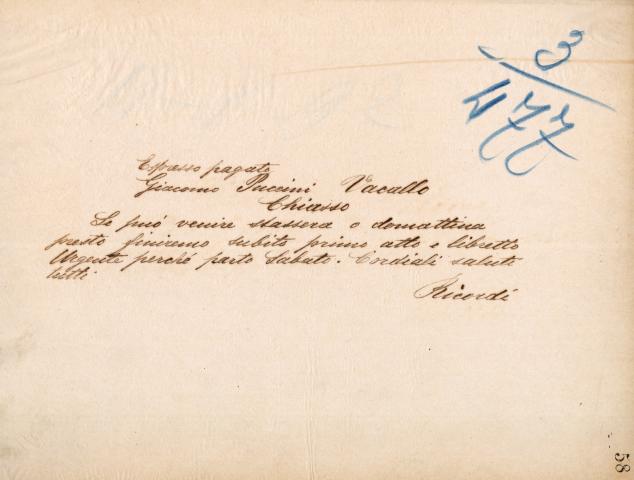 3/477
Espresso pagato
Giacomo Puccini Vacallo
Chiasso
Se può venire stassera o domattina
presto finiremo subito primo atto e libretto
Urgente perché parto Sabato. Cordiali saluti
tutti
Ricordi
58